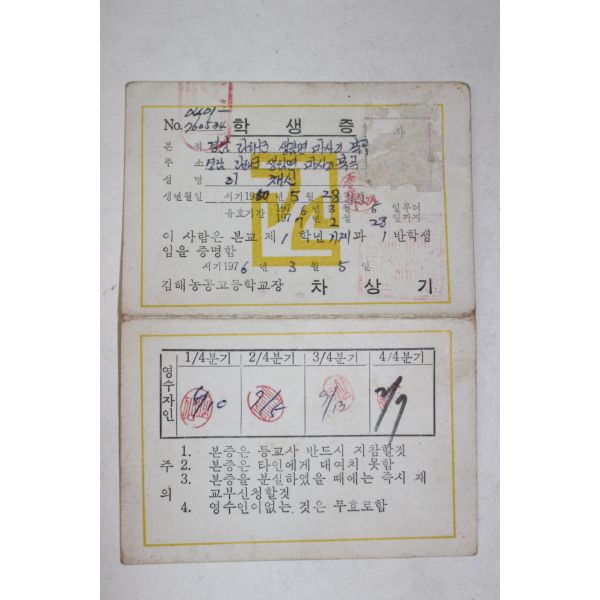 No. 0401-760534 학생증
본적 경남 김해군 생림면 마사리
주소 경남 김해군 생림면 마사리
성명 이 채신
사
생년월일 서기 1960년 5월 28일생
유효기간 1976년 3월 5일부터
1977년 2월 28일까지
이 사람은 본교 제 1 학년 기계과 1 반학생
임을 증명함
서기 1976년 3월 5일
김해농공고등학교장 차상기
영수자인 1/4분기 2/4분기 3/4분기 4/4분기
9/13
주의
1. 본증은 등교사 반드시 지참할것
2. 본증은 타인에게 대여치 못함
3. 본증을 분실하였을 때에는 즉시 재
교부신청할것
4. 영수인이없는 것은 무효로함